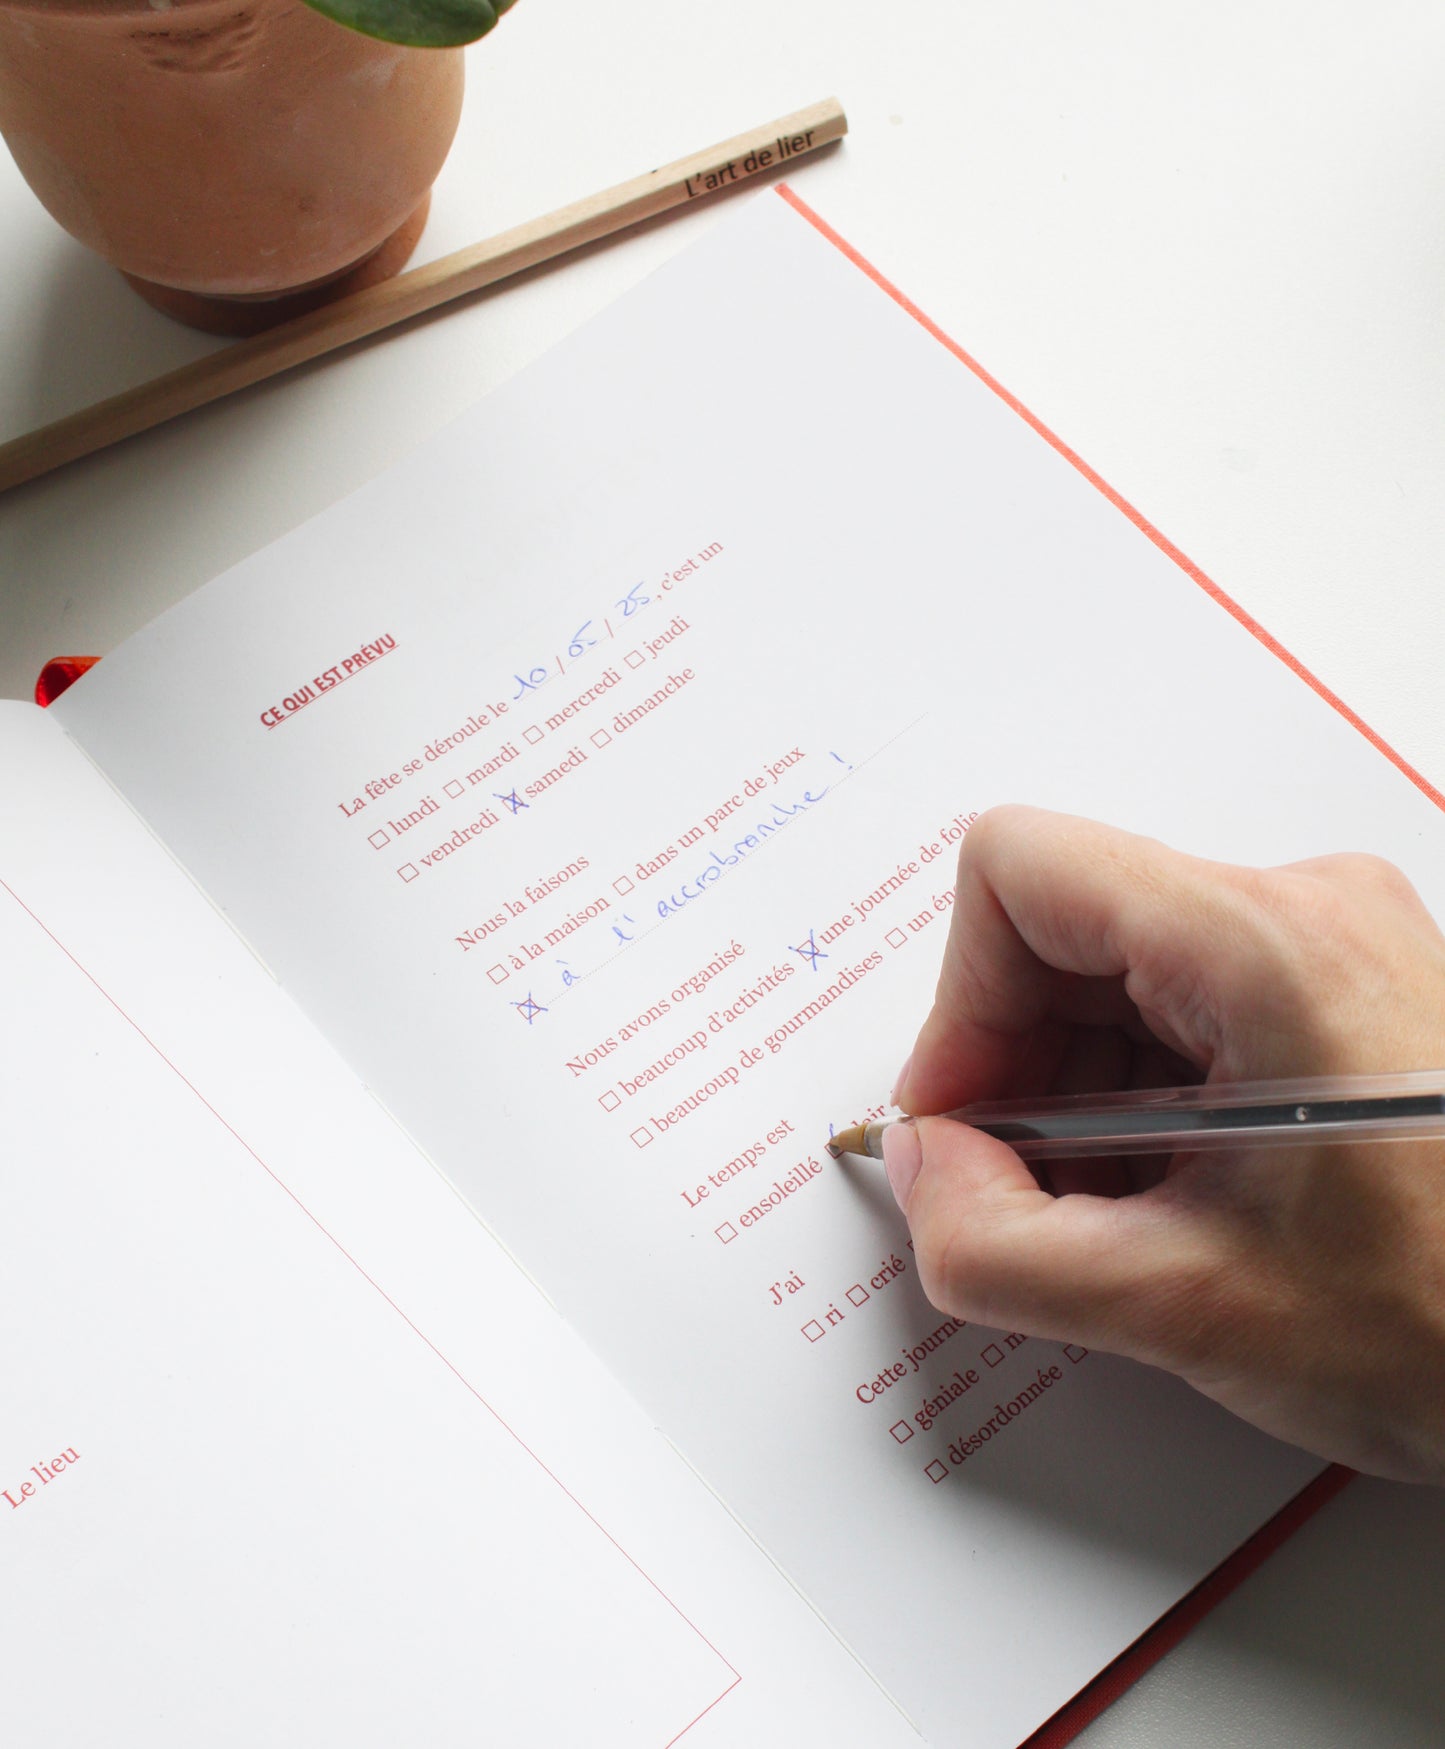 L'art de lier
CE QUI EST PRÉVU
La fête se déroule le 10 / 05 / 25, c'est un
☐ lundi ☐ mardi ☐ mercredi ☐ jeudi
☐ vendredi ☒ samedi ☐ dimanche
Nous la faisons
☐ à la maison ☐ dans un parc de jeux
☒ à l'accrobranche !
Nous avons organisé
☐ beaucoup d'activités ☒ une journée de folie
☐ beaucoup de gourmandises ☐ un
Le temps est
☐ ensoleillé ☐
J'ai
☐ ri ☐ crié
Cette
☐ géniale ☐
☐ désordonnée ☐
Le lieu